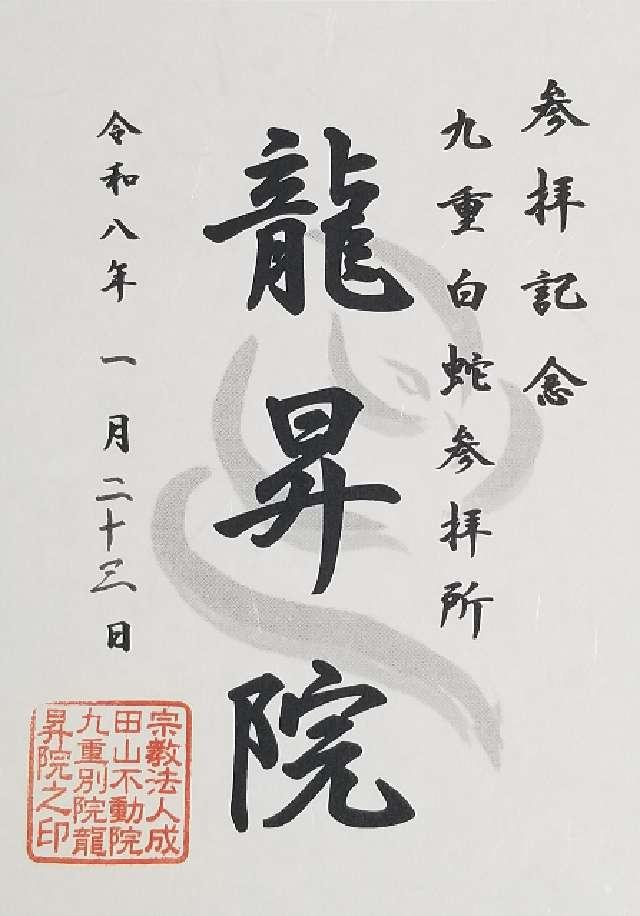 参拝記念
九重白蛇参拝所
龍昇院
令和八年一月二十三日
宗教法人成
田山不動院
九重別院龍
昇院之印